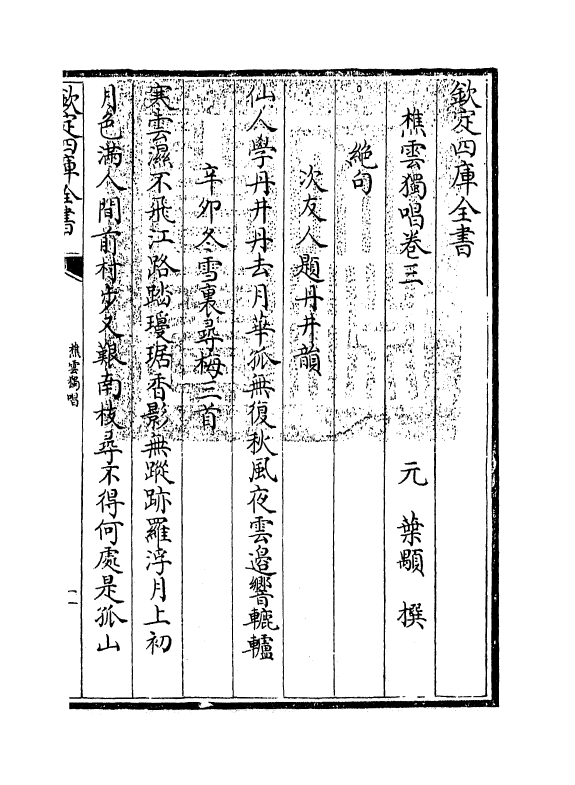 欽定四庫全書
樵雲獨唱卷三
元 葉顒 撰
絶句
次友人題丹井韻
仙人學丹井丹去月華孤無復秋風夜雲邉響轆轤
辛卯冬雪裏尋梅三首
寒雲濕不飛江路踏瓊琚香影無蹤跡羅浮月上初
月色滿人間前村步又艱南枝尋不得何處是孤山
欽定四庫全書
樵雲獨唱
一